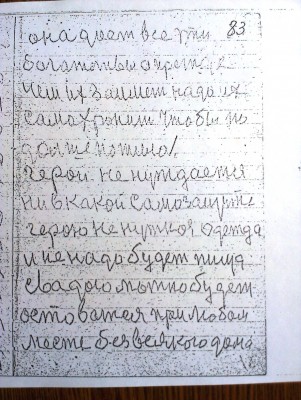 она дает все эти 83
богатствы а прежде
чем их займет надо их
само хронит чтобы по
дольше пожило!
герой не нуждается
ни в какой самозащите
герою не нужноя одежда
и не надо будет пища
свадого мытно будет
остоватся при любом
месте без всякого дома